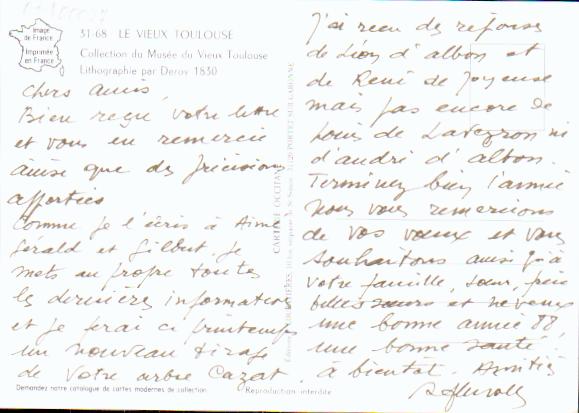 Image
de France
Imprimée
en France
31-68 LE VIEUX TOULOUSE
Collection du Musée du Vieux Toulouse
Lithographie par Deroy 1830
Chers amis,
Bien reçu votre lettre
et vous en remercie
ainsi que des précisions
apportées
Comme je l'écris à Aimé
Gérald et Gilbert je
mets au propre toutes
les dernières informations
et je ferai ce printemps
un nouveau tirage
de votre arbre Cazat.
Demandez notre catalogue de cartes modernes de collection
Reproduction interdite
CARTIVÉE OCCITANE
J'ai reçu des réponses
de Léon d'albon et
de René de Joyeuse
mais pas encore de
Louis de Laveyron ni
d'andré d'albon.
Terminez bien l'année
nous vous remercions
de vos voeux et vous
souhaitons ainsi qu'à
votre famille, soeur, frère
belles soeurs et neveux
une bonne année 88,
une bonne santé!
à bientôt. Amitiés